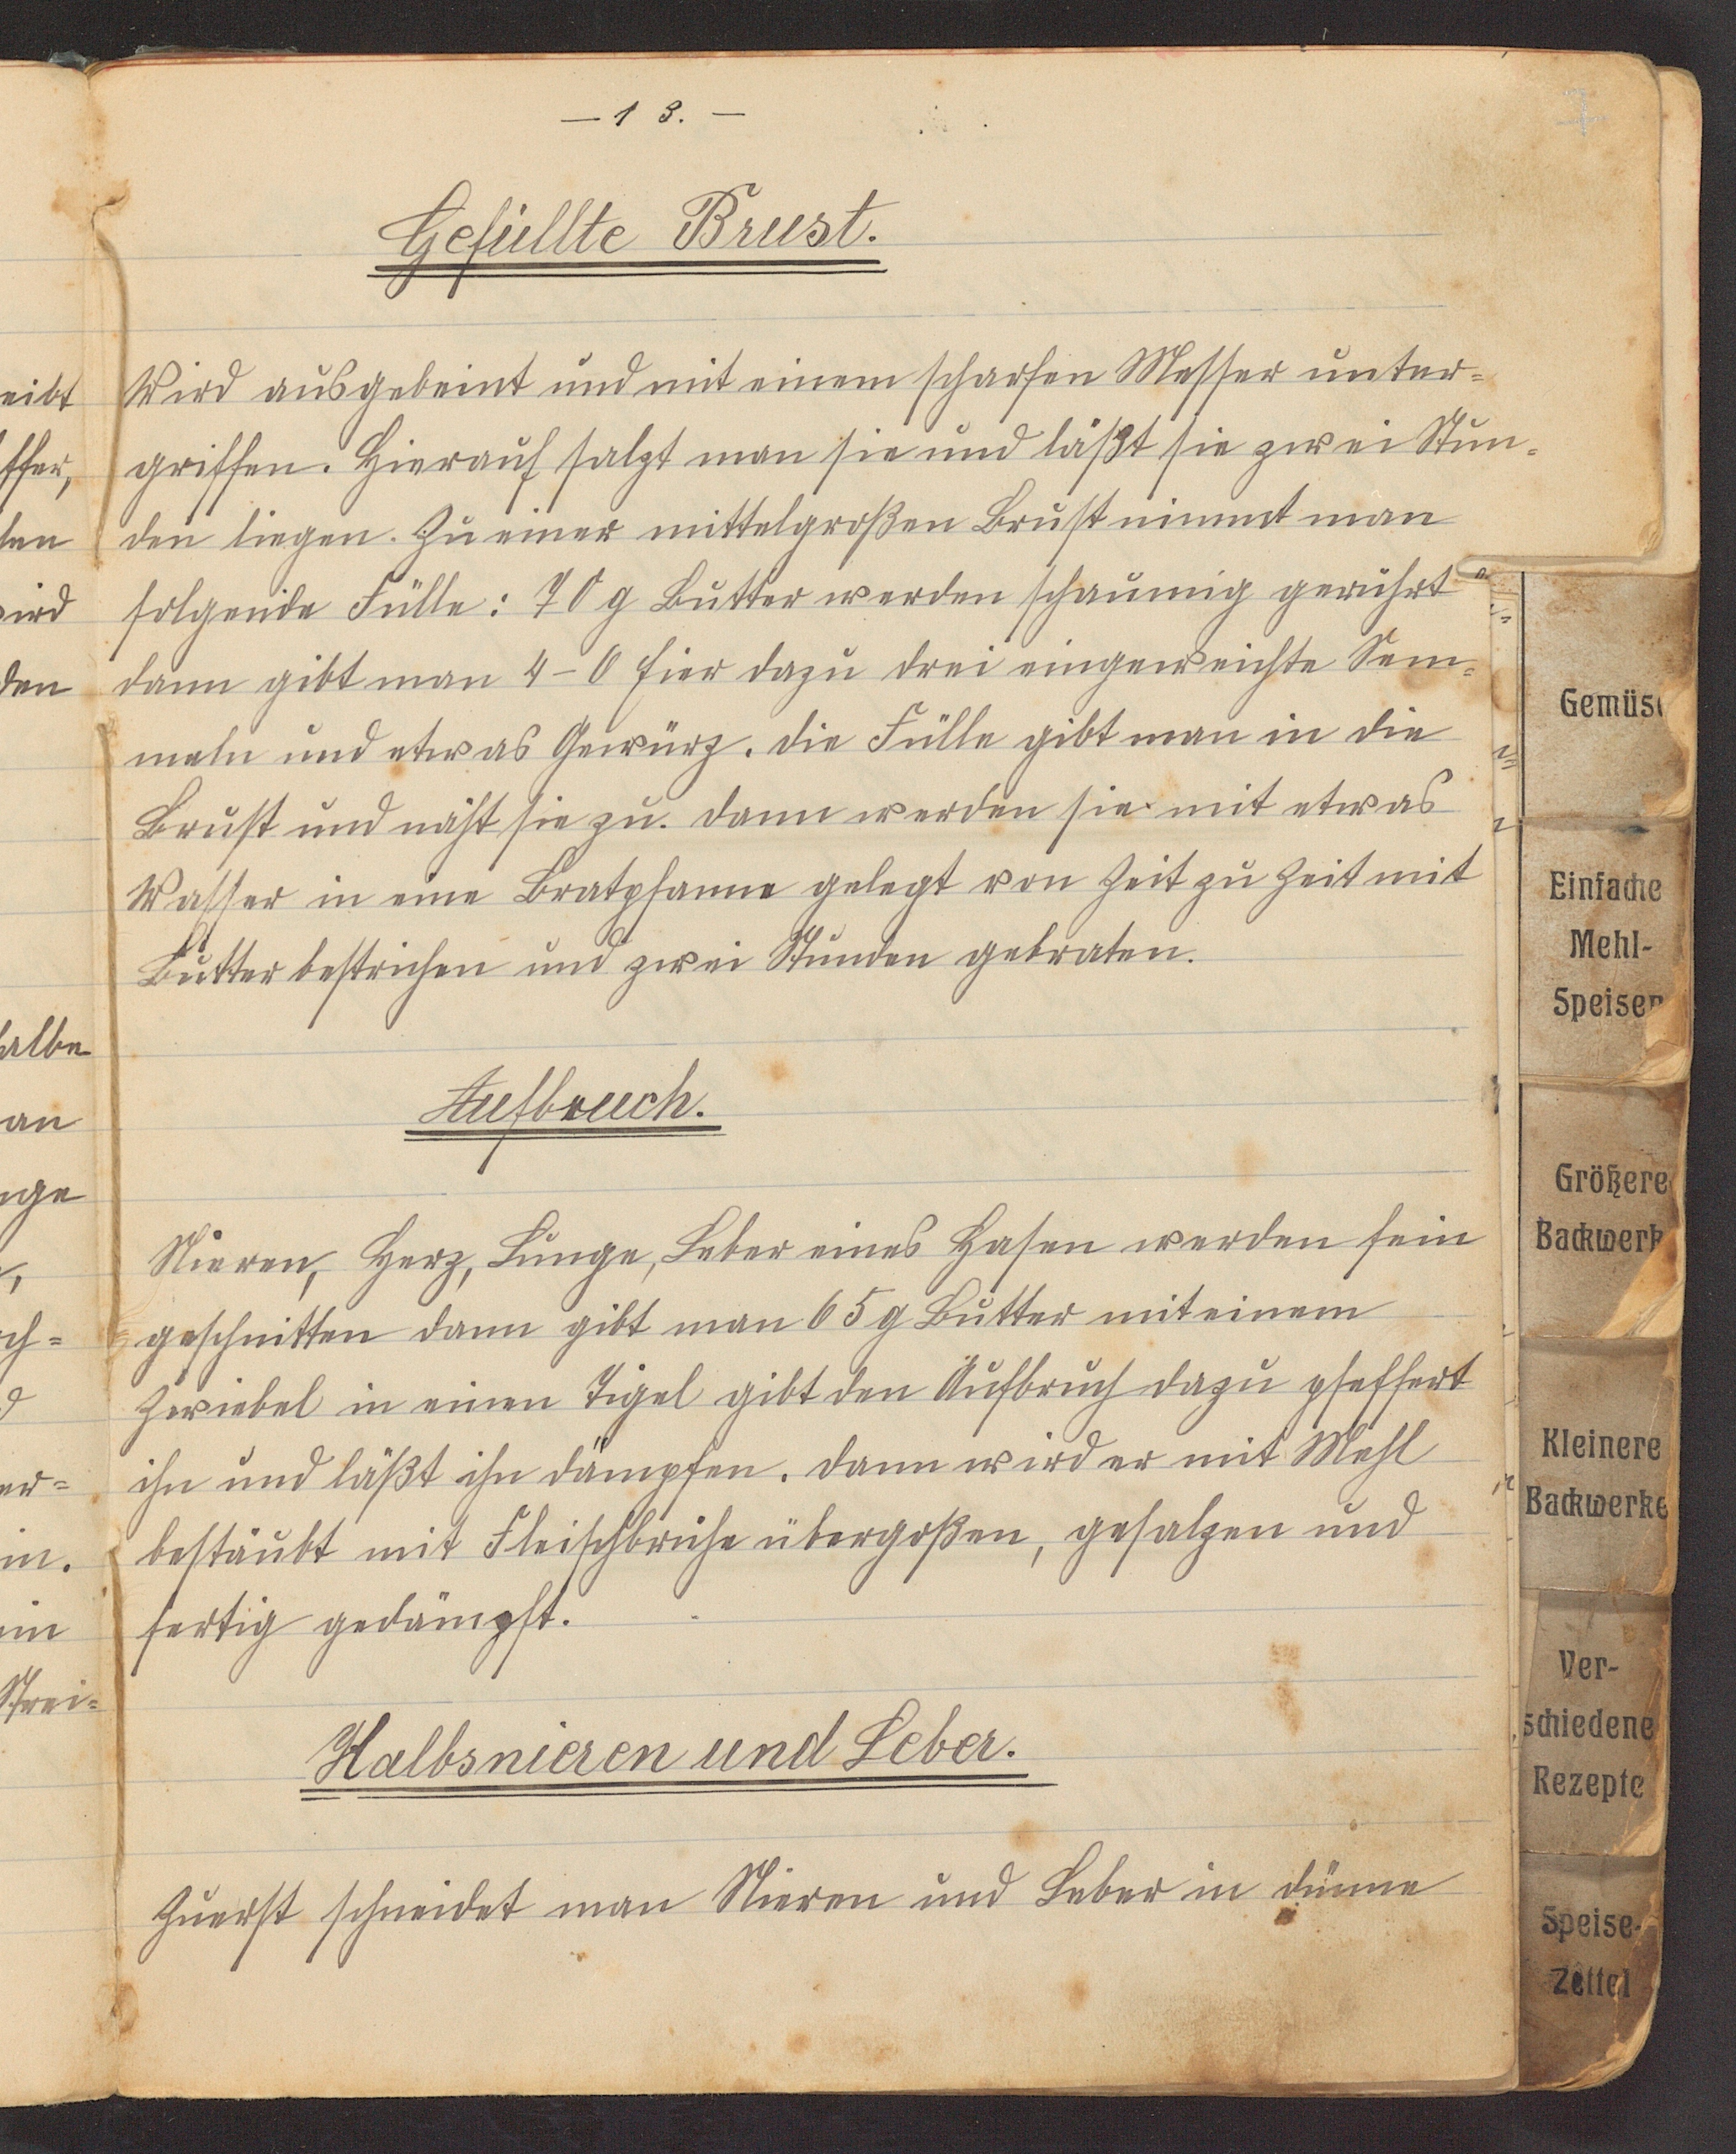 — 1 3. —
Gefüllte Brust.
Wird ausgebeint und mit einem scharfen Messer unter=
griffen. Hierauf salzt man sie und läßt sie zwei Stun=
den liegen. Zu einer mittelgroßen Brust nimmt man
folgende Fülle: 70 g Butter werden schaumig gerührt
dann gibt man 4–6 Eier dazu drei eingeweichte Sem=
meln und etwas Gewürz. die Fülle gibt man in die
Brust und näht sie zu. dann werden sie mit etwas
Wasser in eine Bratpfanne gelegt von Zeit zu Zeit mit
Butter bestrichen und zwei Stunden gebraten.
Aufbruch.
Nieren, Herz, Lunge, Leber eines Hasen werden fein
geschnitten dann gibt man 65 g Butter mit einem
Zwiebel in einen Tigel gibt den Aufbruch dazu pfeffert
ihn und läßt ihn dämpfen. dann wird er mit Mehl
bestäubt mit Fleischbrühe übergoßen, gesalzen und
fertig gedämpft.
Kalbsnieren und Leber.
Zuerst schneidet man Nieren und Leber in dünne
eibt
ffer,
ten
wird
den
halbe
an
nge
ch=
d
er=
in.
ein
Strei=
Gemüse
Einfache
Mehl-
Speisen
Größere
Backwerk
Kleinere
Backwerke
Ver-
schiedene
Rezepte
Speise-
Zettel